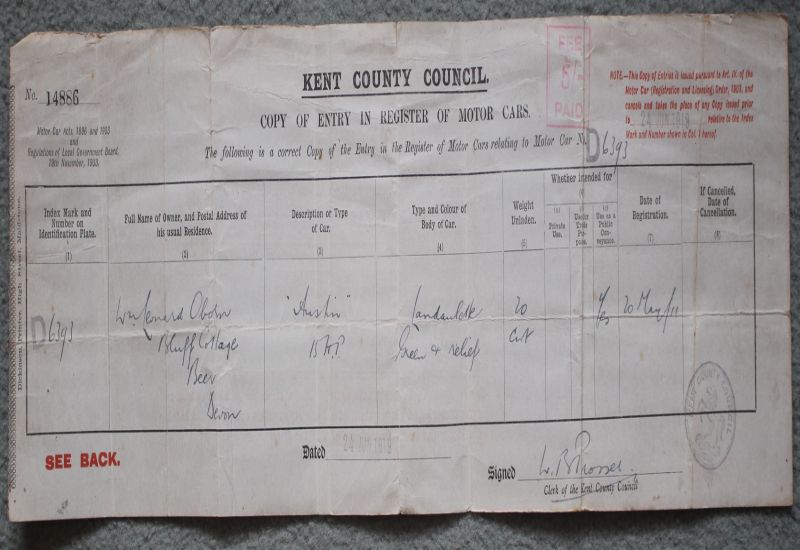 No. 14886
KENT COUNTY COUNCIL.
COPY OF ENTRY IN REGISTER OF MOTOR CARS.
The following is a correct Copy of the Entry in the Register of Motor Cars relating to Motor Car No. D 6393
Motor Car Acts, 1896 and 1903
and
Regulations of Local Government Board,
19th November, 1903.
FEE
PAID
NOTE.—This Copy of Entries is issued pursuant to Art. IV. of the
Motor Car (Registration and Licensing) Order, 1903, and
cancels and takes the place of any Copy issued prior
to 24 JUN 1919 relative to the Index
Mark and Number shown in Col. 1 hereof.
Index Mark and
Number on
Identification Plate.
(1)
Full Name of Owner, and Postal Address of
his usual Residence.
(2)
Description or Type
of Car.
(3)
Type and Colour of
Body of Car.
(4)
Weight
Unladen.
(5)
Whether intended for
(6)
(a)
Private
Use.
(b)
Under
Trade Pur-
pose.
(c)
Use as a
Public Con-
veyance.
Date of
Registration.
(7)
If Cancelled,
Date of
Cancellation.
(8)
D 6393
Wm Lenard Oborn
Bluff Cottage
Beer
Devon
"Austin"
15 H.P.
Landaulette
Green & relief
20
Cwt
Yes
20 May/11
Dickinson, Printer, High Street, Maidstone.
KENT COUNTY COUNCIL
SEE BACK.
Dated 24 JUN 1919
Signed W. B. Prosser
Clerk of the Kent County Council